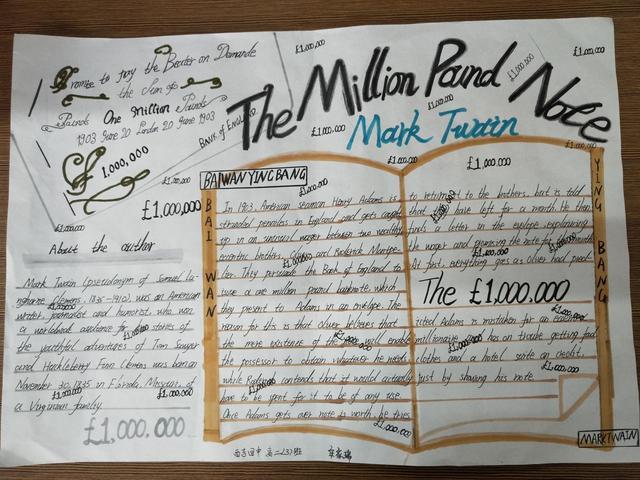 Promise to pay the Bearer on Demande
the Sum of
Pounds One Million Pounds
1903 June 20 London 20 June 1903
BANK OF ENGLAND
£ 1,000,000
The Million Pound Note
Mark Twain
£1,000,000
£1,000,000
£1,000,000
£1,000,000
£1,000,000
About the author
Mark Twain (pseudonym of Samuel La-
nghorne Clemens, 1835-1910), was an American
writer, journalist and humorist, who won
a worldwide audience for stories of
the youthful adventures of Tom Sawyer
and Huckleberry Finn. Clemens was born on
November 30, 1835 in Florida, Missouri, of
a Virginian family.
£1,000,000
BAIWANYINGBANG
BAI WAN
In 1903, American seaman Henry Adams is
stranded penniless in England and gets caught
up in an unusual wager between two wealthy
eccentric brothers, and Roderick Montpe-
lier. They persuade the Bank of England to
issue a one million pound banknote, which
they present to Adams in an envelope. The
reason for this is that Oliver believes that
the mere existence of the will enable
the possessor to obtain whatever he needs,
while Roderick contends that it would actually
have to be spent for it to be of any use.
Once Adams gets over note is worth, he tries
to return it to the brothers, but is told
that they have left for a month. He then
finds a letter in the envelope explaining
the wager and promising the note for
At first, everything goes as Oliver had
The £1,000,000
icted. Adams is mistaken for an
millionaire has no trouble getting food,
clothes and a hotel suite on credit,
just by showing his note
£1,000,000
YING BANG
MARKTWAIN
高二(3)班